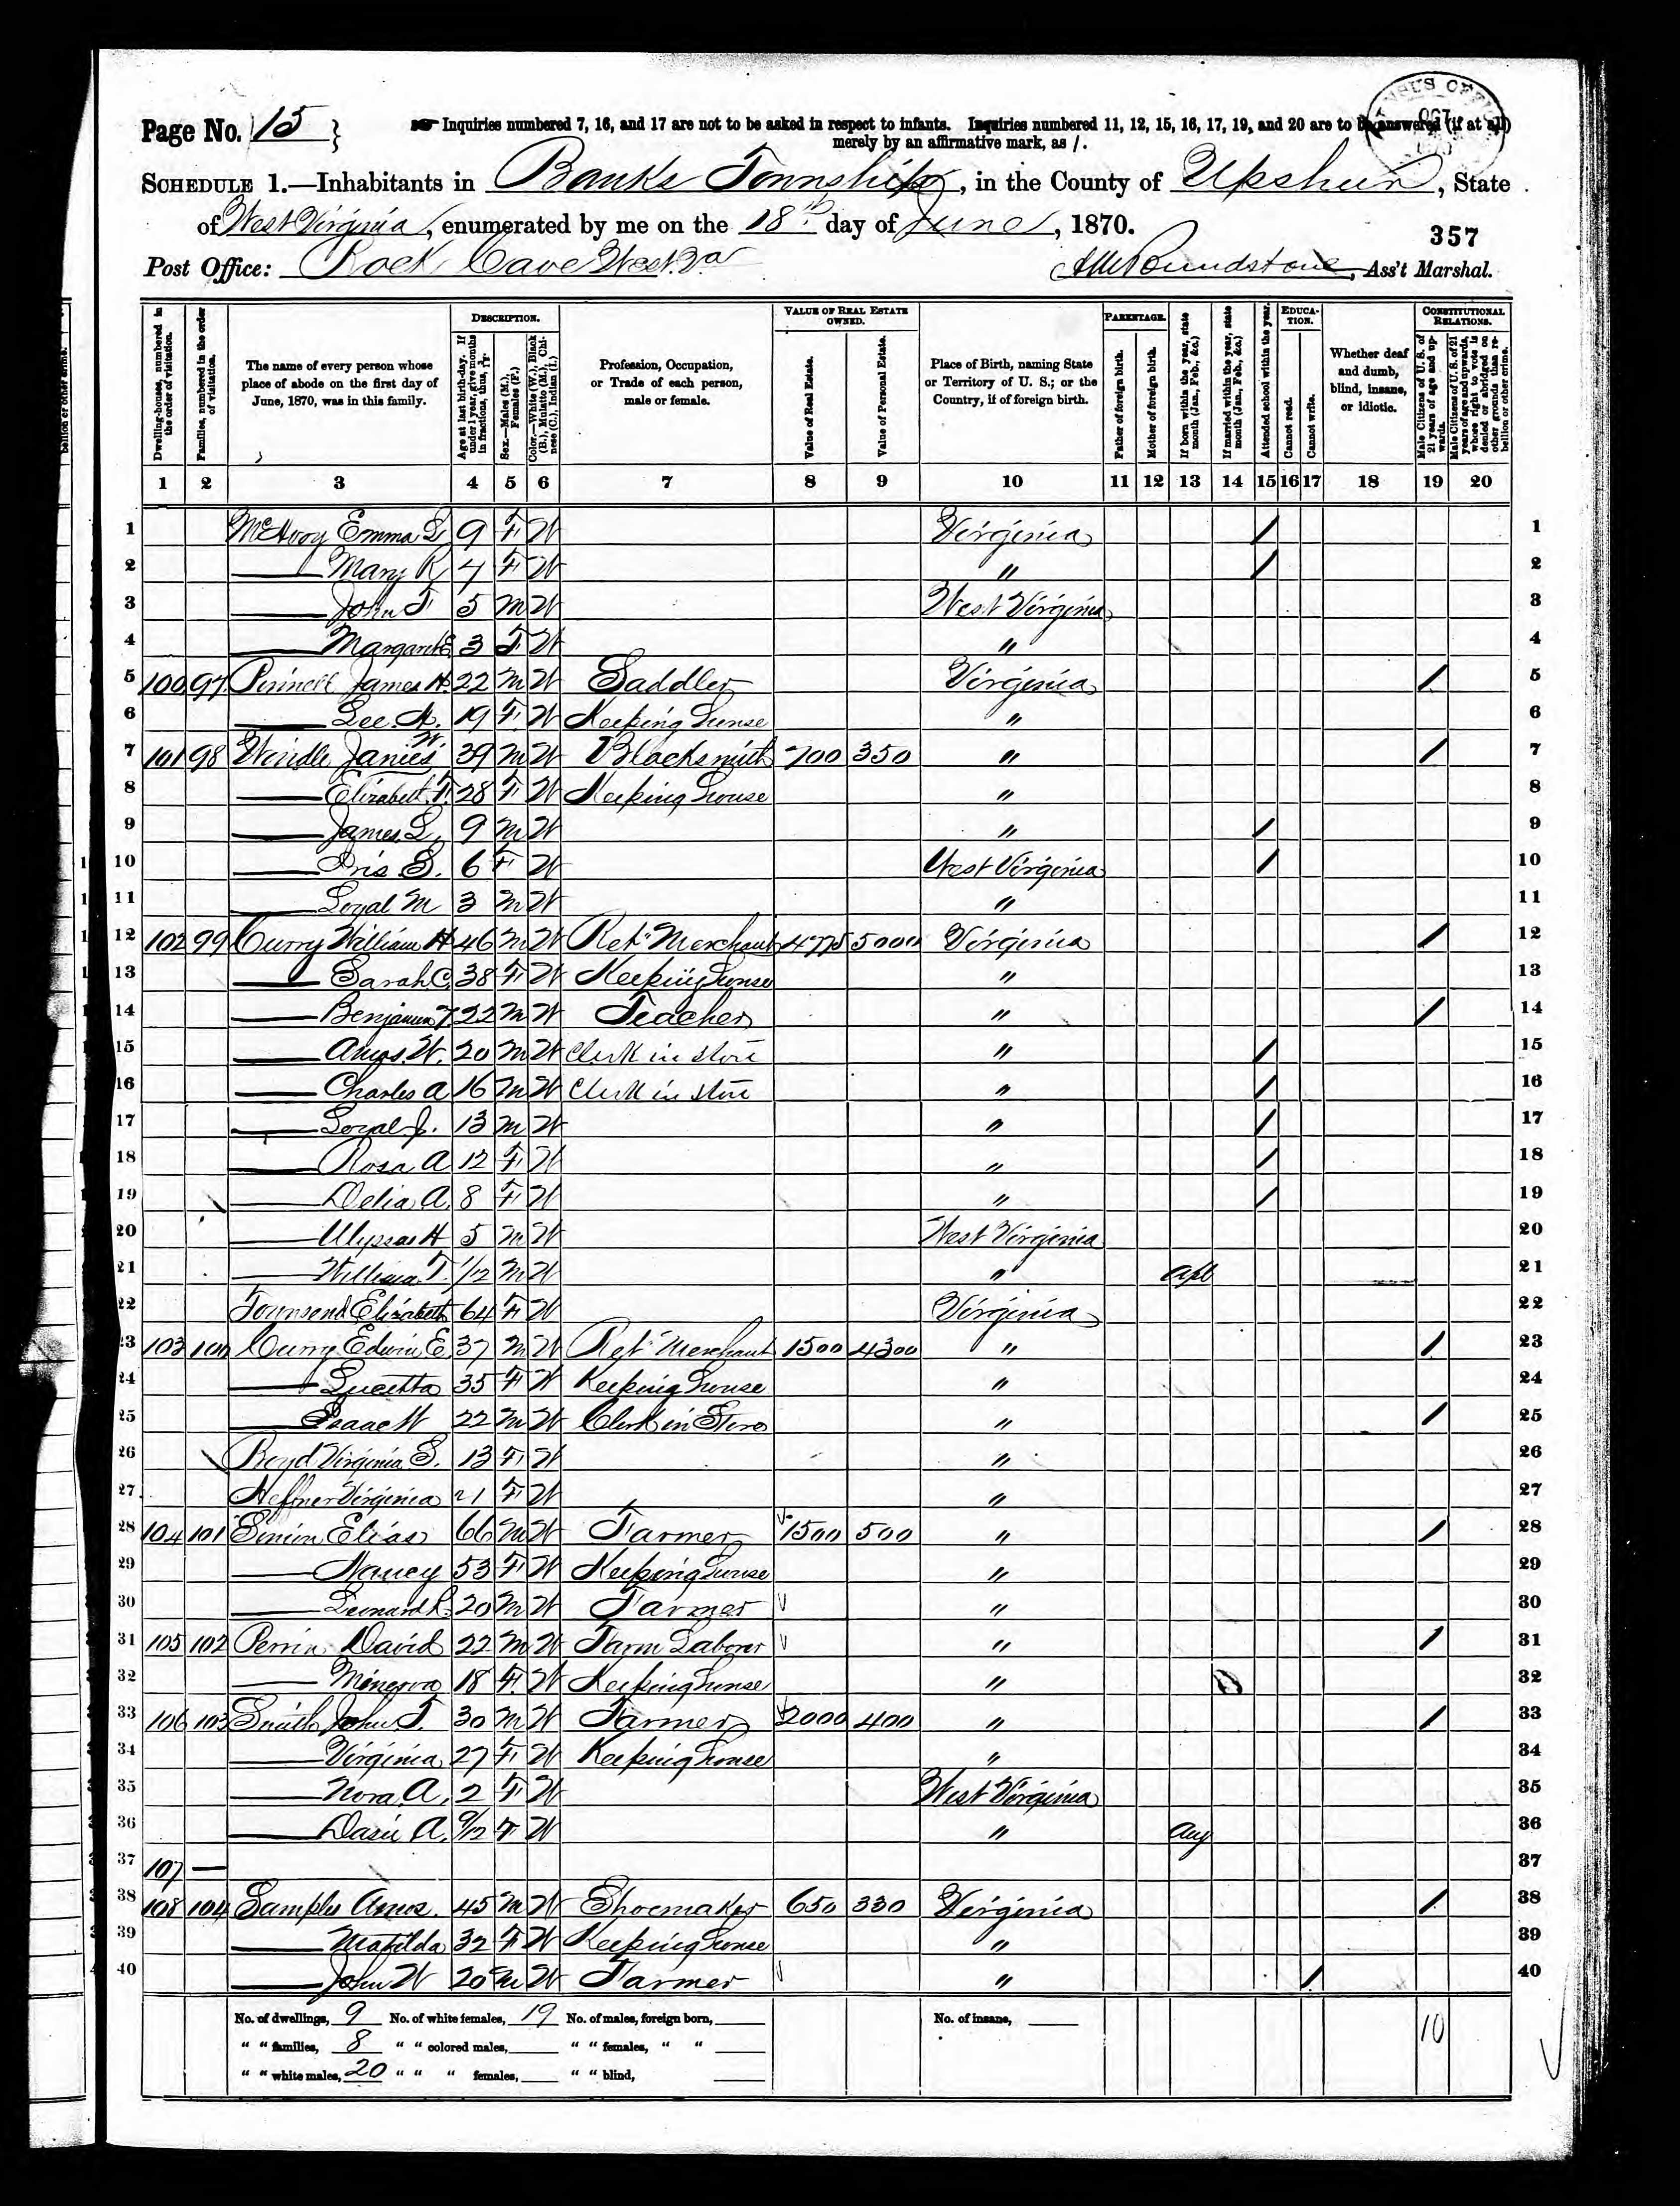 Page No. 15 }
Inquiries numbered 7, 16, and 17 are not to be asked in respect to infants. Inquiries numbered 11, 12, 15, 16, 17, 19, and 20 are to be answered (if at all)
merely by an affirmative mark, as /.
SCHEDULE 1.—Inhabitants in Banks Township, in the County of Upshur, State
of West Virginia, enumerated by me on the 18th day of June, 1870.
357
Post Office: Rock Cave West Va Poundstone, Ass't Marshal.
DESCRIPTION. VALUE OF REAL ESTATE OWNED. PARENTAGE. EDUCATION. CONSTITUTIONAL RELATIONS.
Dwelling-houses, numbered in the order of visitation.
Families, numbered in the order of visitation.
The name of every person whose place of abode on the first day of June, 1870, was in this family.
Age at last birth-day. If under 1 year, give months in fractions, thus,
Sex.—Males (M.), Females (F.)
Color.—White (W.), Black (B.), Mulatto (M.), Chinese (C.), Indian (I.)
Profession, Occupation, or Trade of each person, male or female.
Value of Real Estate.
Value of Personal Estate.
Place of Birth, naming State or Territory of U. S.; or the Country, if of foreign birth.
Father of foreign birth.
Mother of foreign birth.
If born within the year, state month (Jan., Feb., &c.)
If married within the year, state month (Jan., Feb., &c.)
Attended school within the year.
Cannot read.
Cannot write.
Whether deaf and dumb, blind, insane, or idiotic.
Male Citizens of U. S. of 21 years of age and upwards.
Male Citizens of U. S. of 21 years of age and upwards, whose right to vote is denied or abridged on other grounds than rebellion or other crime.
1 2 3 4 5 6 7 8 9 10 11 12 13 14 15 16 17 18 19 20
1 McAvoy Emma L 9 F W Virginia / 1
2 —— Mary R 7 F W " / 2
3 —— John T 5 M W West Virginia 3
4 —— Margaret E 3 F W " 4
5 100 97 Pinnell James H. 22 M W Saddler Virginia / 5
6 —— Lee A. 19 F W Keeping House " 6
7 101 98 Windle James W. 39 M W Blacksmith 700 350 " / 7
8 —— Elizabeth F. 28 F W Keeping House " 8
9 —— James L. 9 M W " / 9
10 —— Iris S. 6 F W West Virginia / 10
11 —— Loyal M 3 M W " 11
12 102 99 Curry William H 46 M W Ret. Merchant 4775 5000 Virginia / 12
13 —— Sarah C. 38 F W Keeping House " 13
14 —— Benjamin F. 22 M W Teacher " / 14
15 —— W. 20 M W Clerk in store " / 15
16 —— Charles A 16 M W Clerk in store " / 16
17 —— Loyal J. 13 M W " / 17
18 —— Rosa A 12 F W " / 18
19 —— Delia A. 8 F W " / 19
20 —— Ulysses H 5 M W West Virginia 20
21 —— William T. 1/12 M W " Apl 21
22 Townsend Elizabeth 64 F W Virginia 22
23 103 100 Curry Edwin E 37 M W Ret. Merchant 1500 4300 " / 23
24 —— Lucetta 35 F W Keeping House " 24
25 —— Isaac W 22 M W Clerk in Store " / 25
26 Boyd Virginia S. 13 F W " 26
27 Heffner Virginia 21 F W " 27
28 104 101 Simon Elias 66 M W Farmer 1500 500 " / 28
29 —— Nancy 53 F W Keeping House " 29
30 —— Leonard R. 20 M W Farmer " 30
31 105 102 Perrin David 22 M W Farm Laborer " / 31
32 —— Minerva 18 F. W Keeping House " 32
33 106 103 Smith John T. 30 M W Farmer 2000 400 " / 33
34 —— Virginia 27 F W Keeping House " 34
35 —— Nora A. 2 F W West Virginia 35
36 —— Dasie A. 9/12 F W " Aug 36
37 107 — 37
38 108 104 Samples Amos. 45 M W Shoemaker 650 330 Virginia / 38
39 —— Matilda 32 F W Keeping House " 39
40 —— John W 20 M W Farmer " / 40
No. of dwellings, 9 No. of white females, 19 No. of males, foreign born, No. of insane, 10
" " families, 8 " " colored males, " " females, " "
" " white males, 20 " " " females, " " blind,